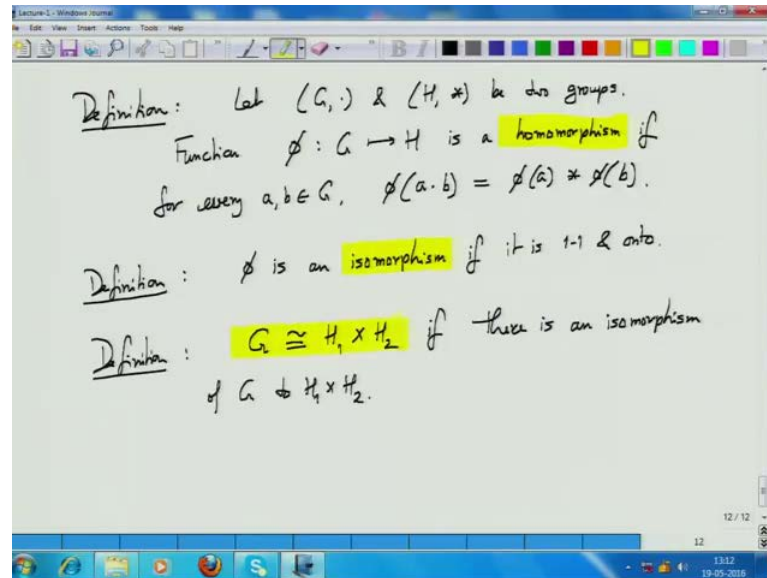 Lecture-1 - Windows Journal
File Edit View Insert Actions Tools Help
Definition : Let (G, ·) & (H, *) be two groups.
Function ϕ : G ↦ H is a homomorphism if
for every a, b ∈ G, ϕ(a · b) = ϕ(a) * ϕ(b).
Definition : ϕ is an isomorphism if it is 1-1 & onto.
Definition : G ≅ H₁ × H₂ if there is an isomorphism
of G to H₁ × H₂.
12 / 12
12
13:12
19-05-2016